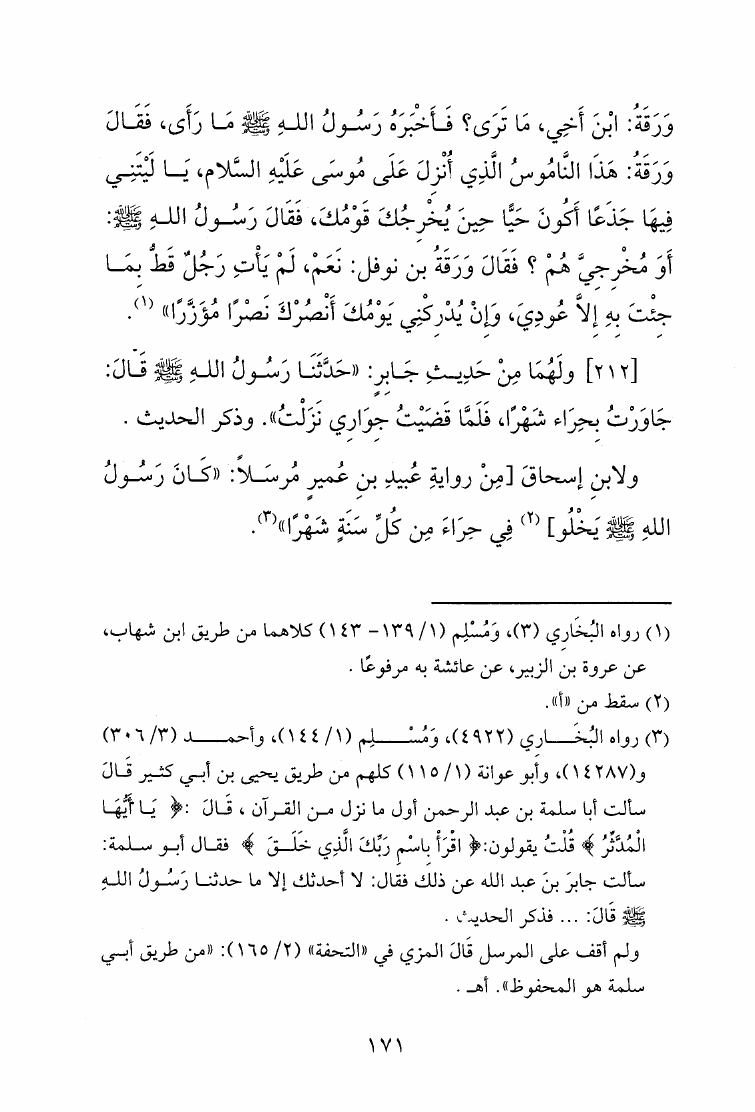 وَرَقَةُ: ابْنَ أَخِي، مَا تَرَى؟ فَأَخْبَرَهُ رَسُولُ اللهِ ﷺ مَا رَأَى، فَقَالَ
وَرَقَةُ: هَذَا النَّامُوسُ الَّذِي أُنْزِلَ عَلَى مُوسَى عَلَيْهِ السَّلام، يَا لَيْتَنِي
فِيهَا جَذَعًا أَكُونَ حَيًّا حِينَ يُخْرِجُكَ قَوْمُكَ، فَقَالَ رَسُولُ اللهِ ﷺ:
أَوَ مُخْرِجِيَّ هُمْ ؟ فَقَالَ وَرَقَةُ بن نوفل: نَعَمْ، لَمْ يَأْتِ رَجُلٌ قَطُّ بِمَا
جِئْتَ بِهِ إِلاَّ عُودِيَ، وَإِنْ يُدْرِكْنِي يَوْمُكَ أَنْصُرْكَ نَصْرًا مُؤَزَّرًا» (١).
[٢١٢] ولَهُمَا مِنْ حَدِيثِ جَابِرٍ: «حَدَّثَنَا رَسُولُ اللهِ ﷺ قَالَ:
جَاوَرْتُ بِحِرَاء شَهْرًا، فَلَمَّا قَضَيْتُ جِوَارِي نَزَلْتُ». وذكر الحديث .
ولابنِ إسحاقَ [مِنْ روايةِ عُبيدِ بنِ عُميرٍ مُرسَلاً: «كَانَ رَسُولُ
اللهِ ﷺ يَخْلُو] (٢) فِي حِرَاءَ مِن كُلِّ سَنَةٍ شَهْرًا»(٣).
(١) رواه البُخَاري (٣)، وَمُسْلِم (١/ ١٣٩- ١٤٣) كلاهما من طريق ابن شهاب،
عن عروة بن الزبير، عن عائشة به مرفوعًا .
(٢) سقط من «أ».
(٣) رواه البُخَاري (٤٩٢٢)، وَمُسْلِم (١/ ١٤٤)، وأحمد (٣/ ٣٠٦)
و(١٤٢٨٧)، وأبو عوانة (١/ ١١٥) كلهم من طريق يحيى بن أبي كثير قَالَ
سألت أبا سلمة بن عبد الرحمن أول ما نزل من القرآن ، قَالَ :﴿ يَا أَيُّهَا
الْمُدَّثِّرُ ﴾ قُلْتُ يقولون:﴿ اقْرَأْ بِاسْمِ رَبِّكَ الَّذِي خَلَقَ ﴾ فقال أبو سلمة:
سألت جابرَ بنَ عبد الله عن ذلك فقال: لا أحدثك إلا ما حدثنا رَسُولُ اللهِ
ﷺ قَالَ: ... فذكر الحديث .
ولم أقف على المرسل قَالَ المزي في «التحفة» (٢/ ١٦٥): «من طريق أبي
سلمة هو المحفوظ». أهـ .
١٧١